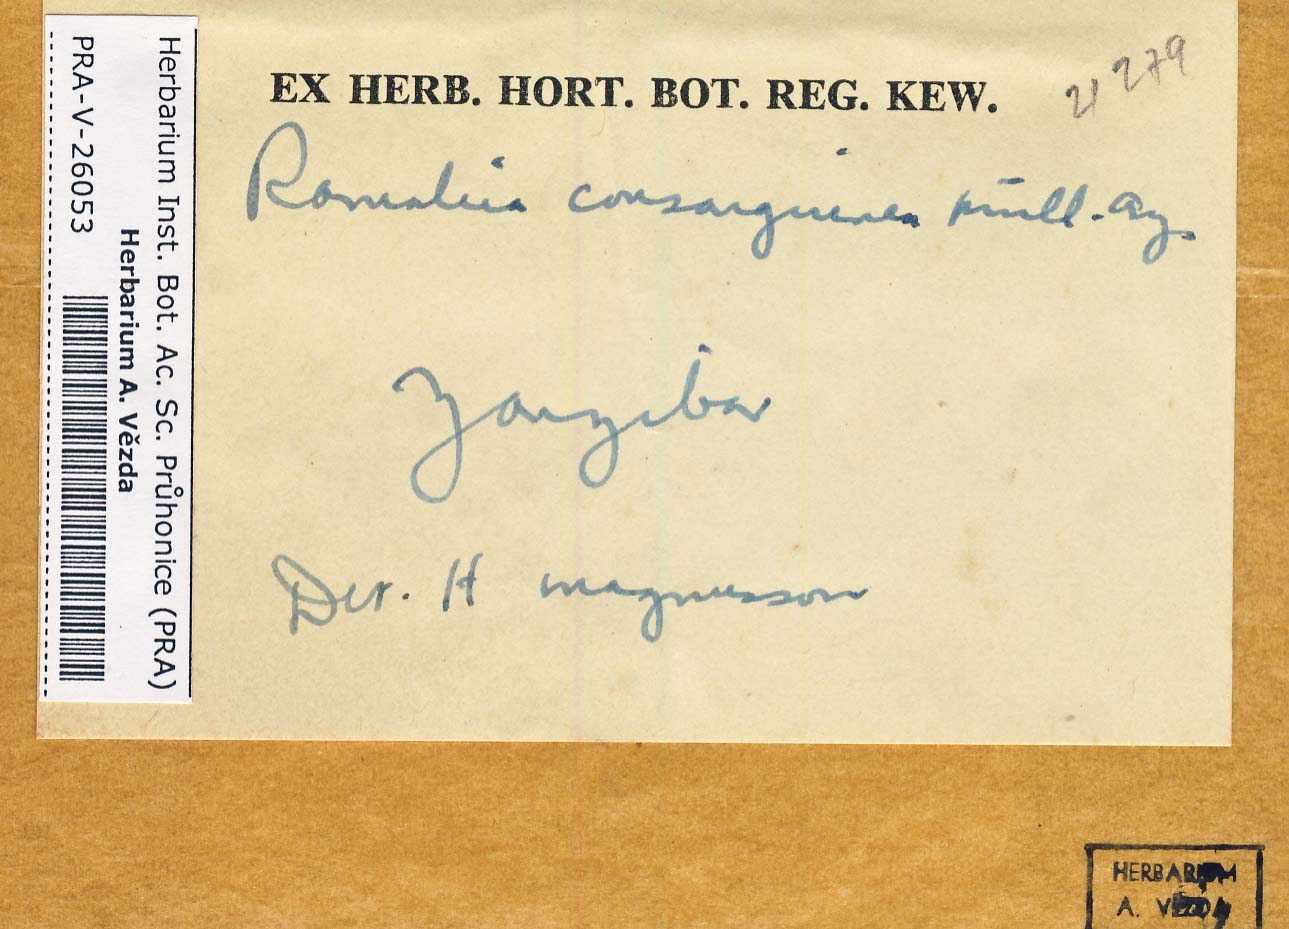 EX HERB. HORT. BOT. REG. KEW.
21279
Ramalina consanguinea Müll. Arg.
Zanzibar
Det. H Magnusson
Herbarium Inst. Bot. Ac. Sc. Průhonice (PRA)
Herbarium A. Vězda
PRA-V-26053
HERBARIUM
A. VĚZDA